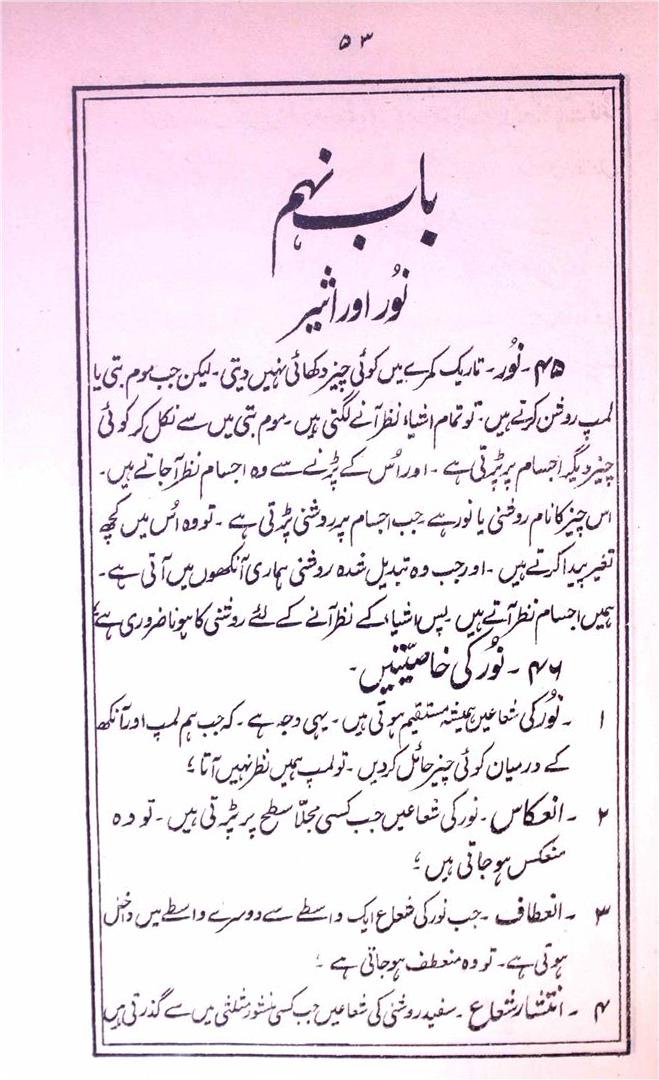 ۵۳
باب نہم
نُور اور اثیر
۴۵ ۔ نُور ۔ تاریک کمرے میں کوئی چیز دکھائی نہیں دیتی ۔ لیکن جب موم بتی یا
لمپ روشن کرتے ہیں ۔ تو تمام اشیاء نظر آنے لگتی ہیں ۔ موم بتی میں سے نکل کر کوئی
چیز دیگر اجسام پر پڑتی ہے ۔ اور اُس کے پڑنے سے وہ اجسام نظر آجاتے ہیں ۔
اس چیز کا نام روشنی یا نور ہے ۔ جب اجسام پر روشنی پڑتی ہے ۔ تو وہ اُس میں کچھ
تغیر پیدا کرتے ہیں ۔ اور جب وہ تبدیل شدہ روشنی ہماری آنکھوں میں آتی ہے ۔
ہمیں اجسام نظر آتے ہیں ۔ پس اشیاء کے نظر آنے کے لئے روشنی کا ہونا ضروری ہے ؛
۴۶ ۔ نُور کی خاصیّتیں ۔
۱ ۔ نُور کی شعاعیں ہمیشہ مستقیم ہوتی ہیں ۔ یہی وجہ ہے ۔ کہ جب ہم لمپ اور آنکھ
کے درمیان کوئی چیز حائل کردیں ۔ تو لمپ ہمیں نظر نہیں آتا ؛
۲ ۔ انعکاس ۔ نور کی شعاعیں جب کسی مجلّا سطح پر پڑتی ہیں ۔ تو وہ
منعکس ہوجاتی ہیں ؛
۳ ۔ انعطاف ۔ جب نور کی شعاع ایک واسطے سے دوسرے واسطے میں داخل
ہوتی ہے ۔ تو وہ منعطف ہوجاتی ہے ؛
۴ ۔ انتشار شعاع ۔ سفید روشنی کی شعاعیں جب کسی منشور مثلثی میں سے گذرتی ہیں